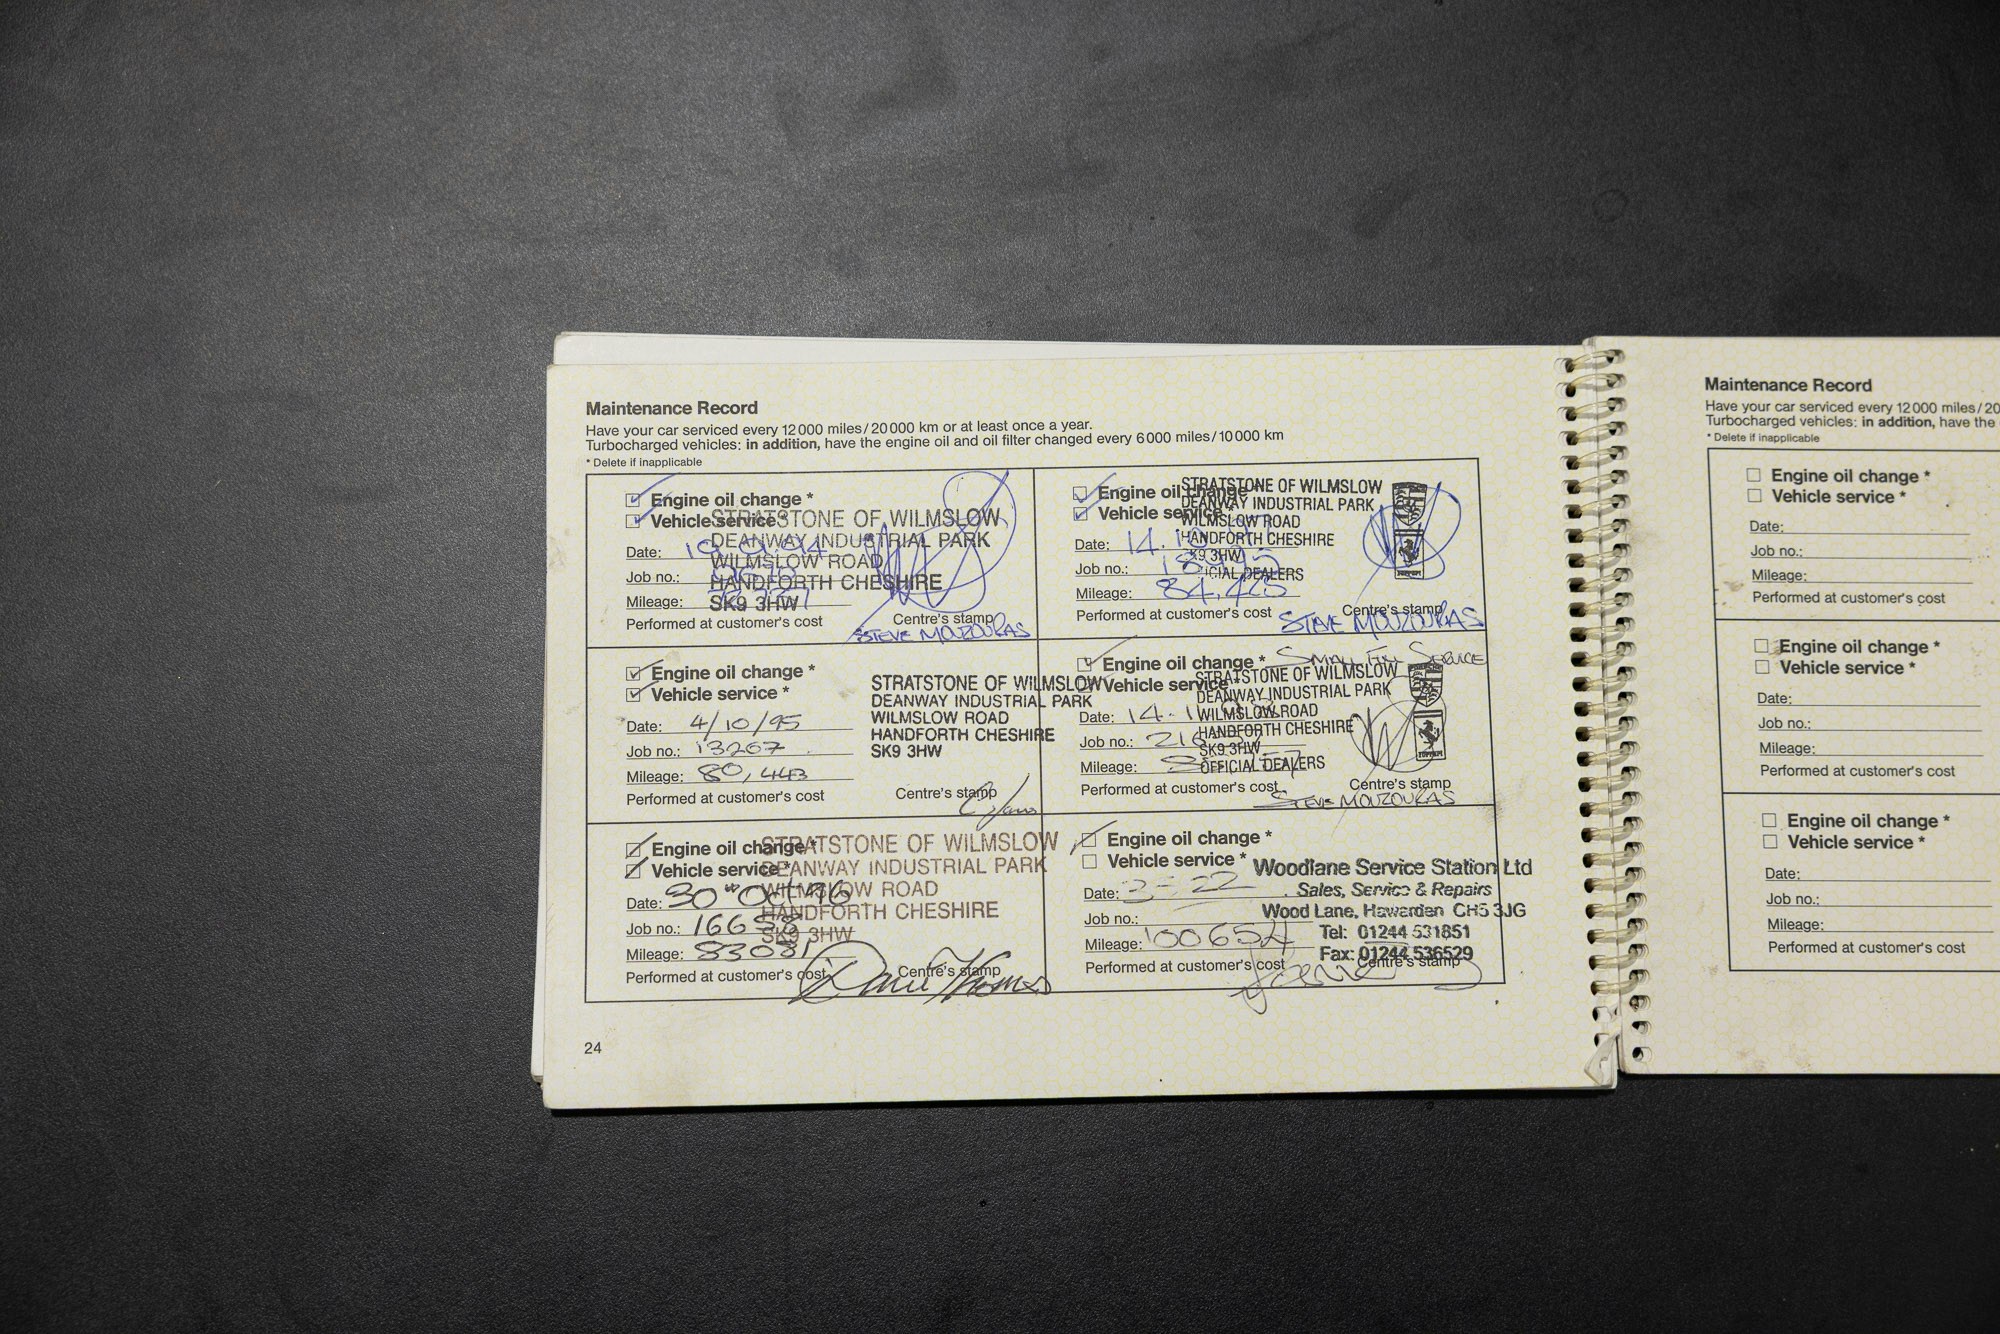 Maintenance Record
Have your car serviced every 12 000 miles/20 000 km or at least once a year.
Turbocharged vehicles: in addition, have the engine oil and oil filter changed every 6 000 miles/10 000 km
* Delete if inapplicable
Engine oil change *
Vehicle service *
STRATSTONE OF WILMSLOW
DEANWAY INDUSTRIAL PARK
WILMSLOW ROAD
HANDFORTH CHESHIRE
SK9 3HW
Date:
Job no.:
Mileage:
Performed at customer's cost
Centre's stamp
STEVE MOUZOURAS
Engine oil change *
Vehicle service *
STRATSTONE OF WILMSLOW
DEANWAY INDUSTRIAL PARK
WILMSLOW ROAD
HANDFORTH CHESHIRE
SK9 3HW
OFFICIAL DEALERS
Date: 14.
Job no.:
Mileage: 84,425
Performed at customer's cost
Centre's stamp
STEVE MOUZOURAS
Engine oil change *
Vehicle service *
STRATSTONE OF WILMSLOW
DEANWAY INDUSTRIAL PARK
WILMSLOW ROAD
HANDFORTH CHESHIRE
SK9 3HW
Date: 4/10/95
Job no.: 13267
Mileage: 80,443
Performed at customer's cost
Centre's stamp
Engine oil change *
SMALL SERVICE
Vehicle service *
STRATSTONE OF WILMSLOW
DEANWAY INDUSTRIAL PARK
WILMSLOW ROAD
HANDFORTH CHESHIRE
SK9 3HW
OFFICIAL DEALERS
Date: 14.
Job no.:
Mileage:
Performed at customer's cost
Centre's stamp
STEVE MOUZOURAS
Engine oil change *
Vehicle service *
STRATSTONE OF WILMSLOW
DEANWAY INDUSTRIAL PARK
WILMSLOW ROAD
HANDFORTH CHESHIRE
SK9 3HW
Date: 30th Oct 96
Job no.: 16658
Mileage: 83081
Performed at customer's cost
Centre's stamp
Engine oil change *
Vehicle service *
Woodlane Service Station Ltd
Sales, Service & Repairs
Wood Lane, Hawarden CH5 3JG
Tel: 01244 531851
Fax: 01244 536529
Date:
Job no.:
Mileage: 100654
Performed at customer's cost
Centre's stamp
24
Maintenance Record
Have your car serviced every 12 000 miles/20
Turbocharged vehicles: in addition, have the
* Delete if inapplicable
Engine oil change *
Vehicle service *
Date:
Job no.:
Mileage:
Performed at customer's cost
Engine oil change *
Vehicle service *
Date:
Job no.:
Mileage:
Performed at customer's cost
Engine oil change *
Vehicle service *
Date:
Job no.:
Mileage:
Performed at customer's cost